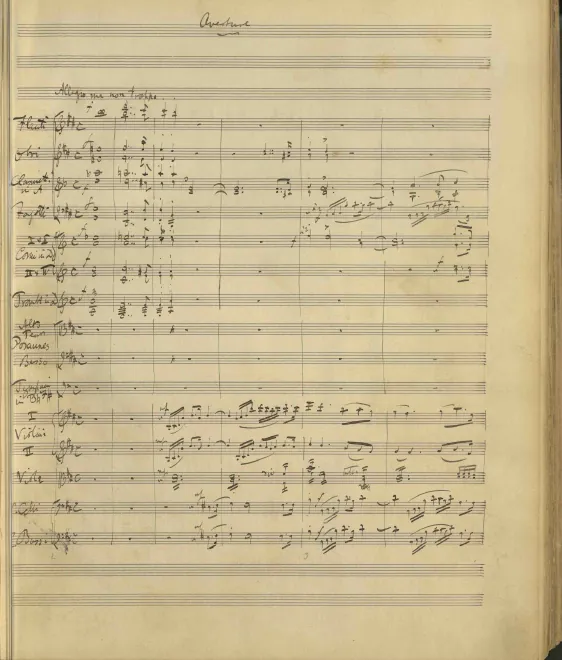 Ouverture
Allegro ma non troppo
Flauti
Oboi
Clarinetti
in A
Fagotti
I e II
Corni in D
III e IV
Trombe in D
Alto
Tenor
Posaunes
Basso
Timpani
I
Violini
II
Viole
Celli
Bassi